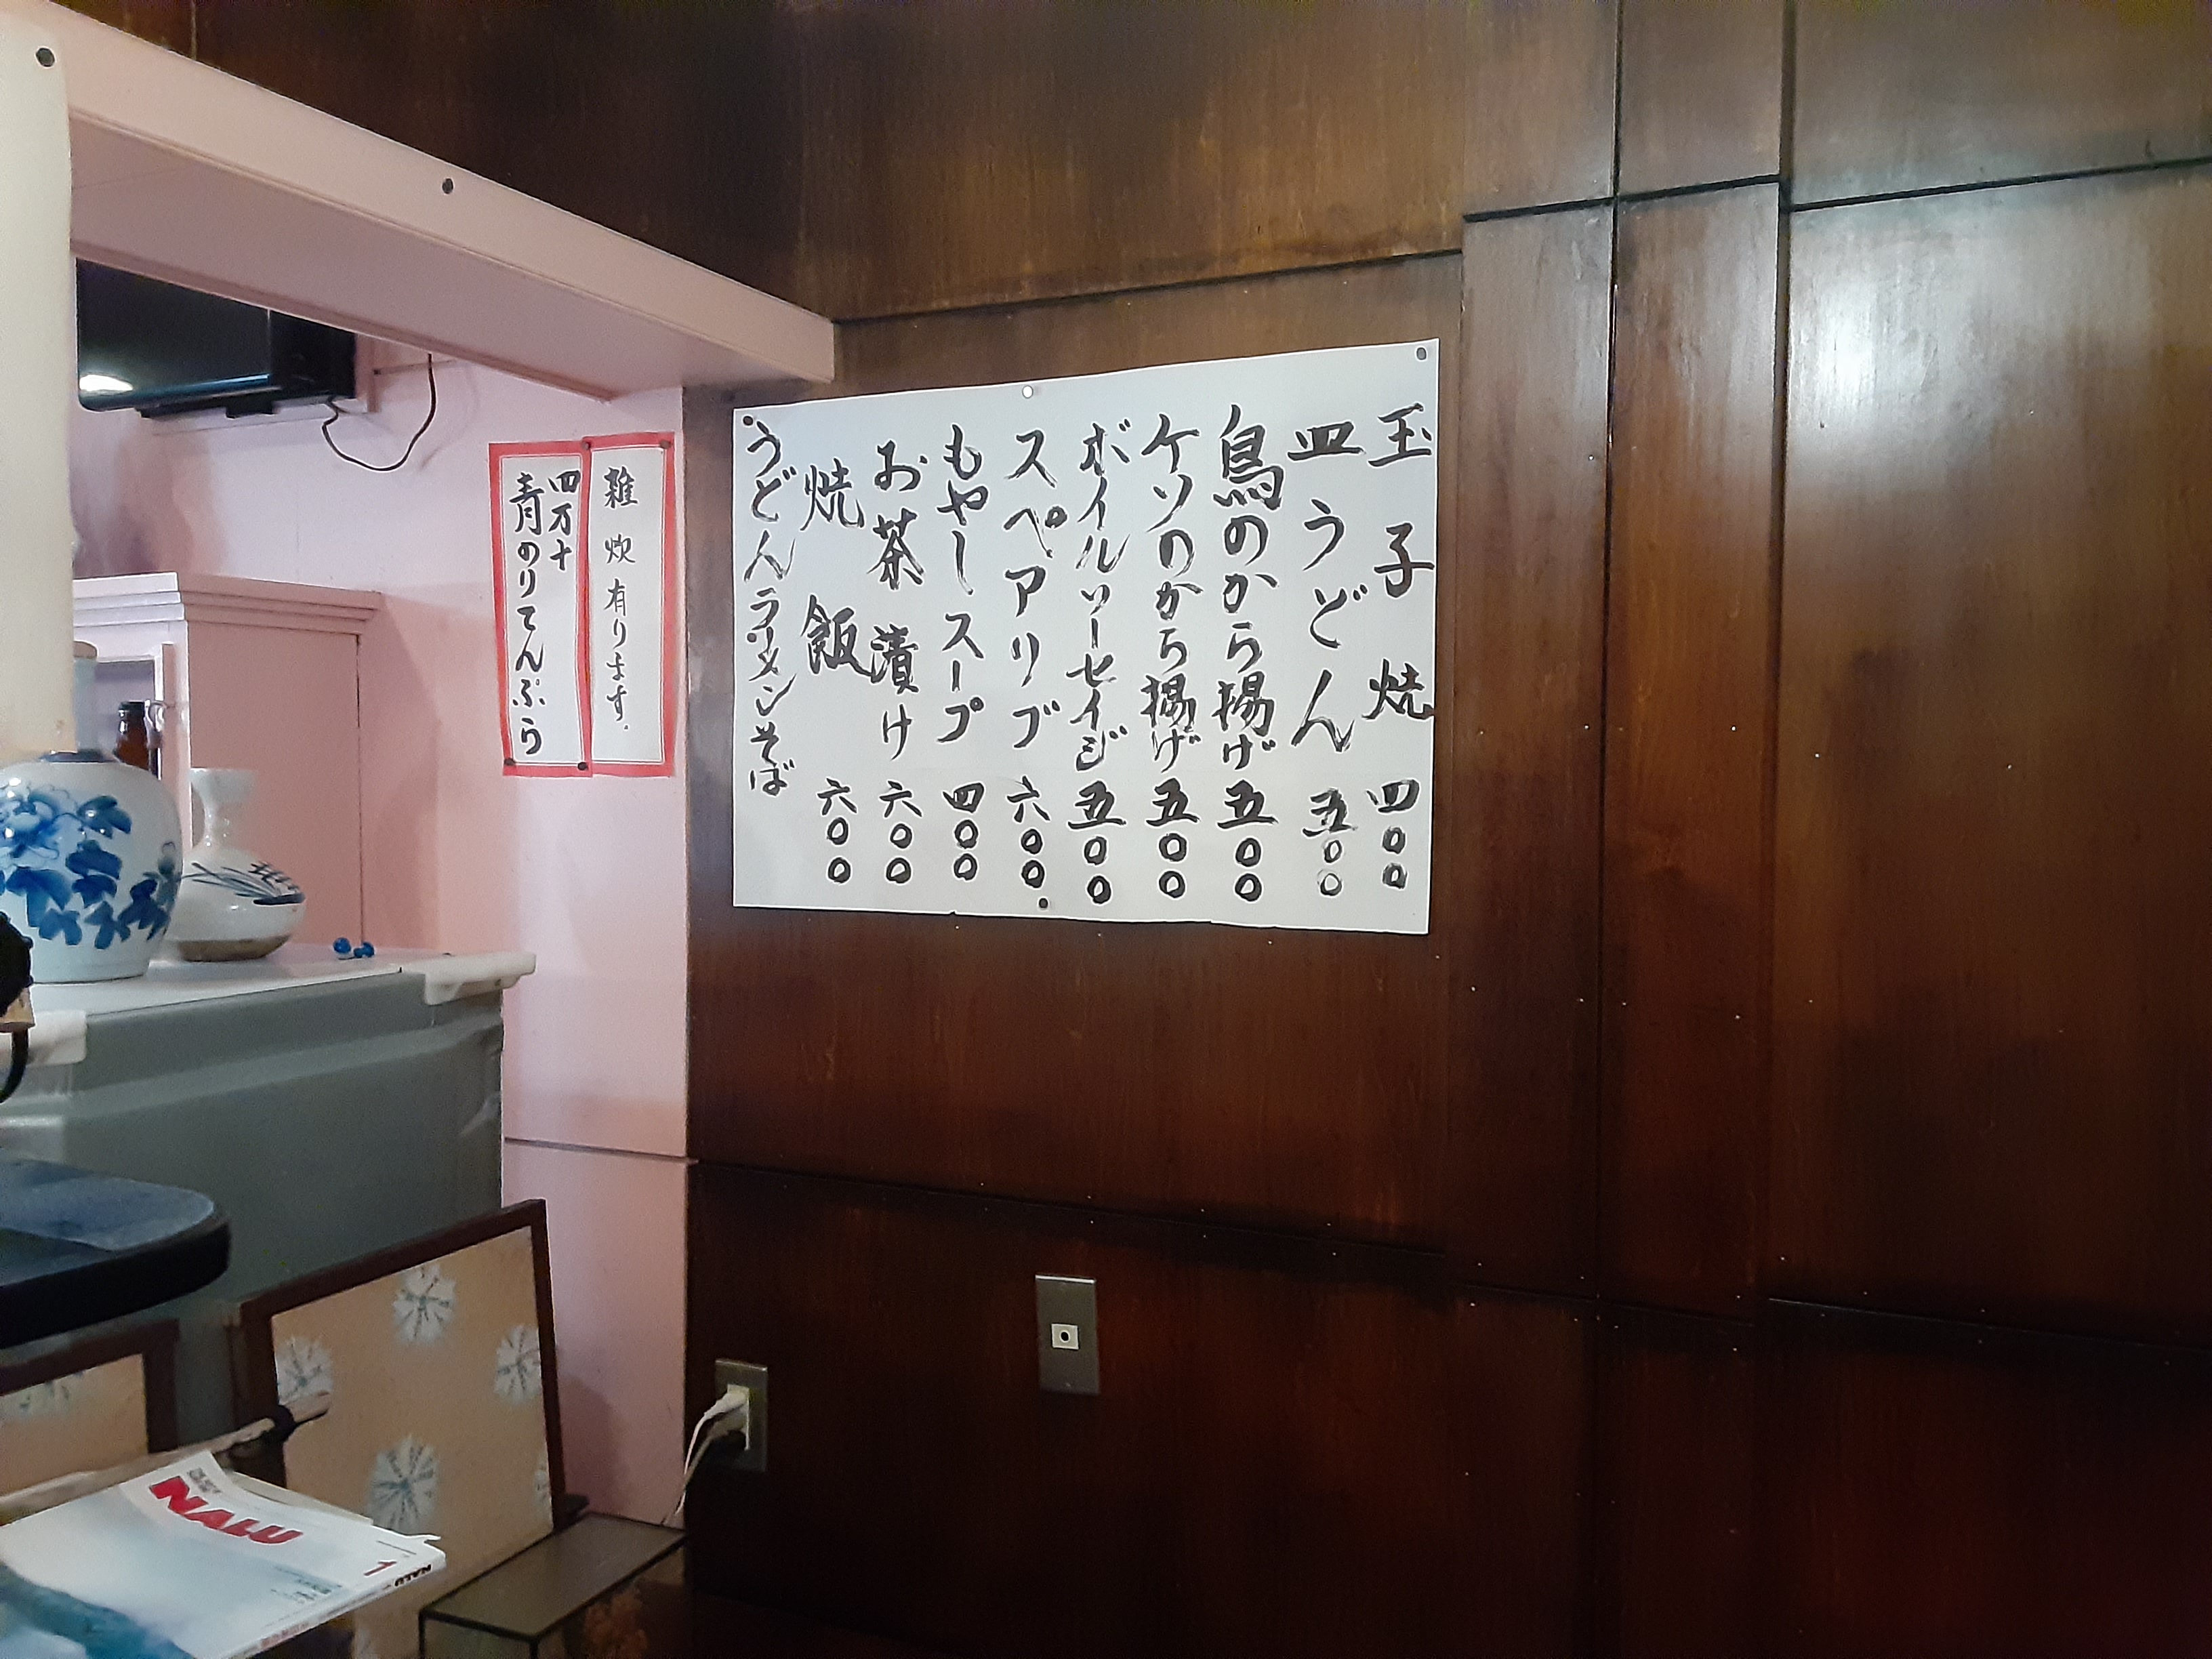 玉子焼 四〇〇
皿うどん 五〇〇
鳥のから揚げ 五〇〇
ケソのから揚げ 五〇〇
ボイルソーセイジ 五〇〇
スペアリブ 六〇〇
もやしスープ 四〇〇
お茶漬け 六〇〇
焼飯 六〇〇
うどんラーメンそば
雑炊有ります.
四万十
青のりてんぷら
NALU
1
NALU